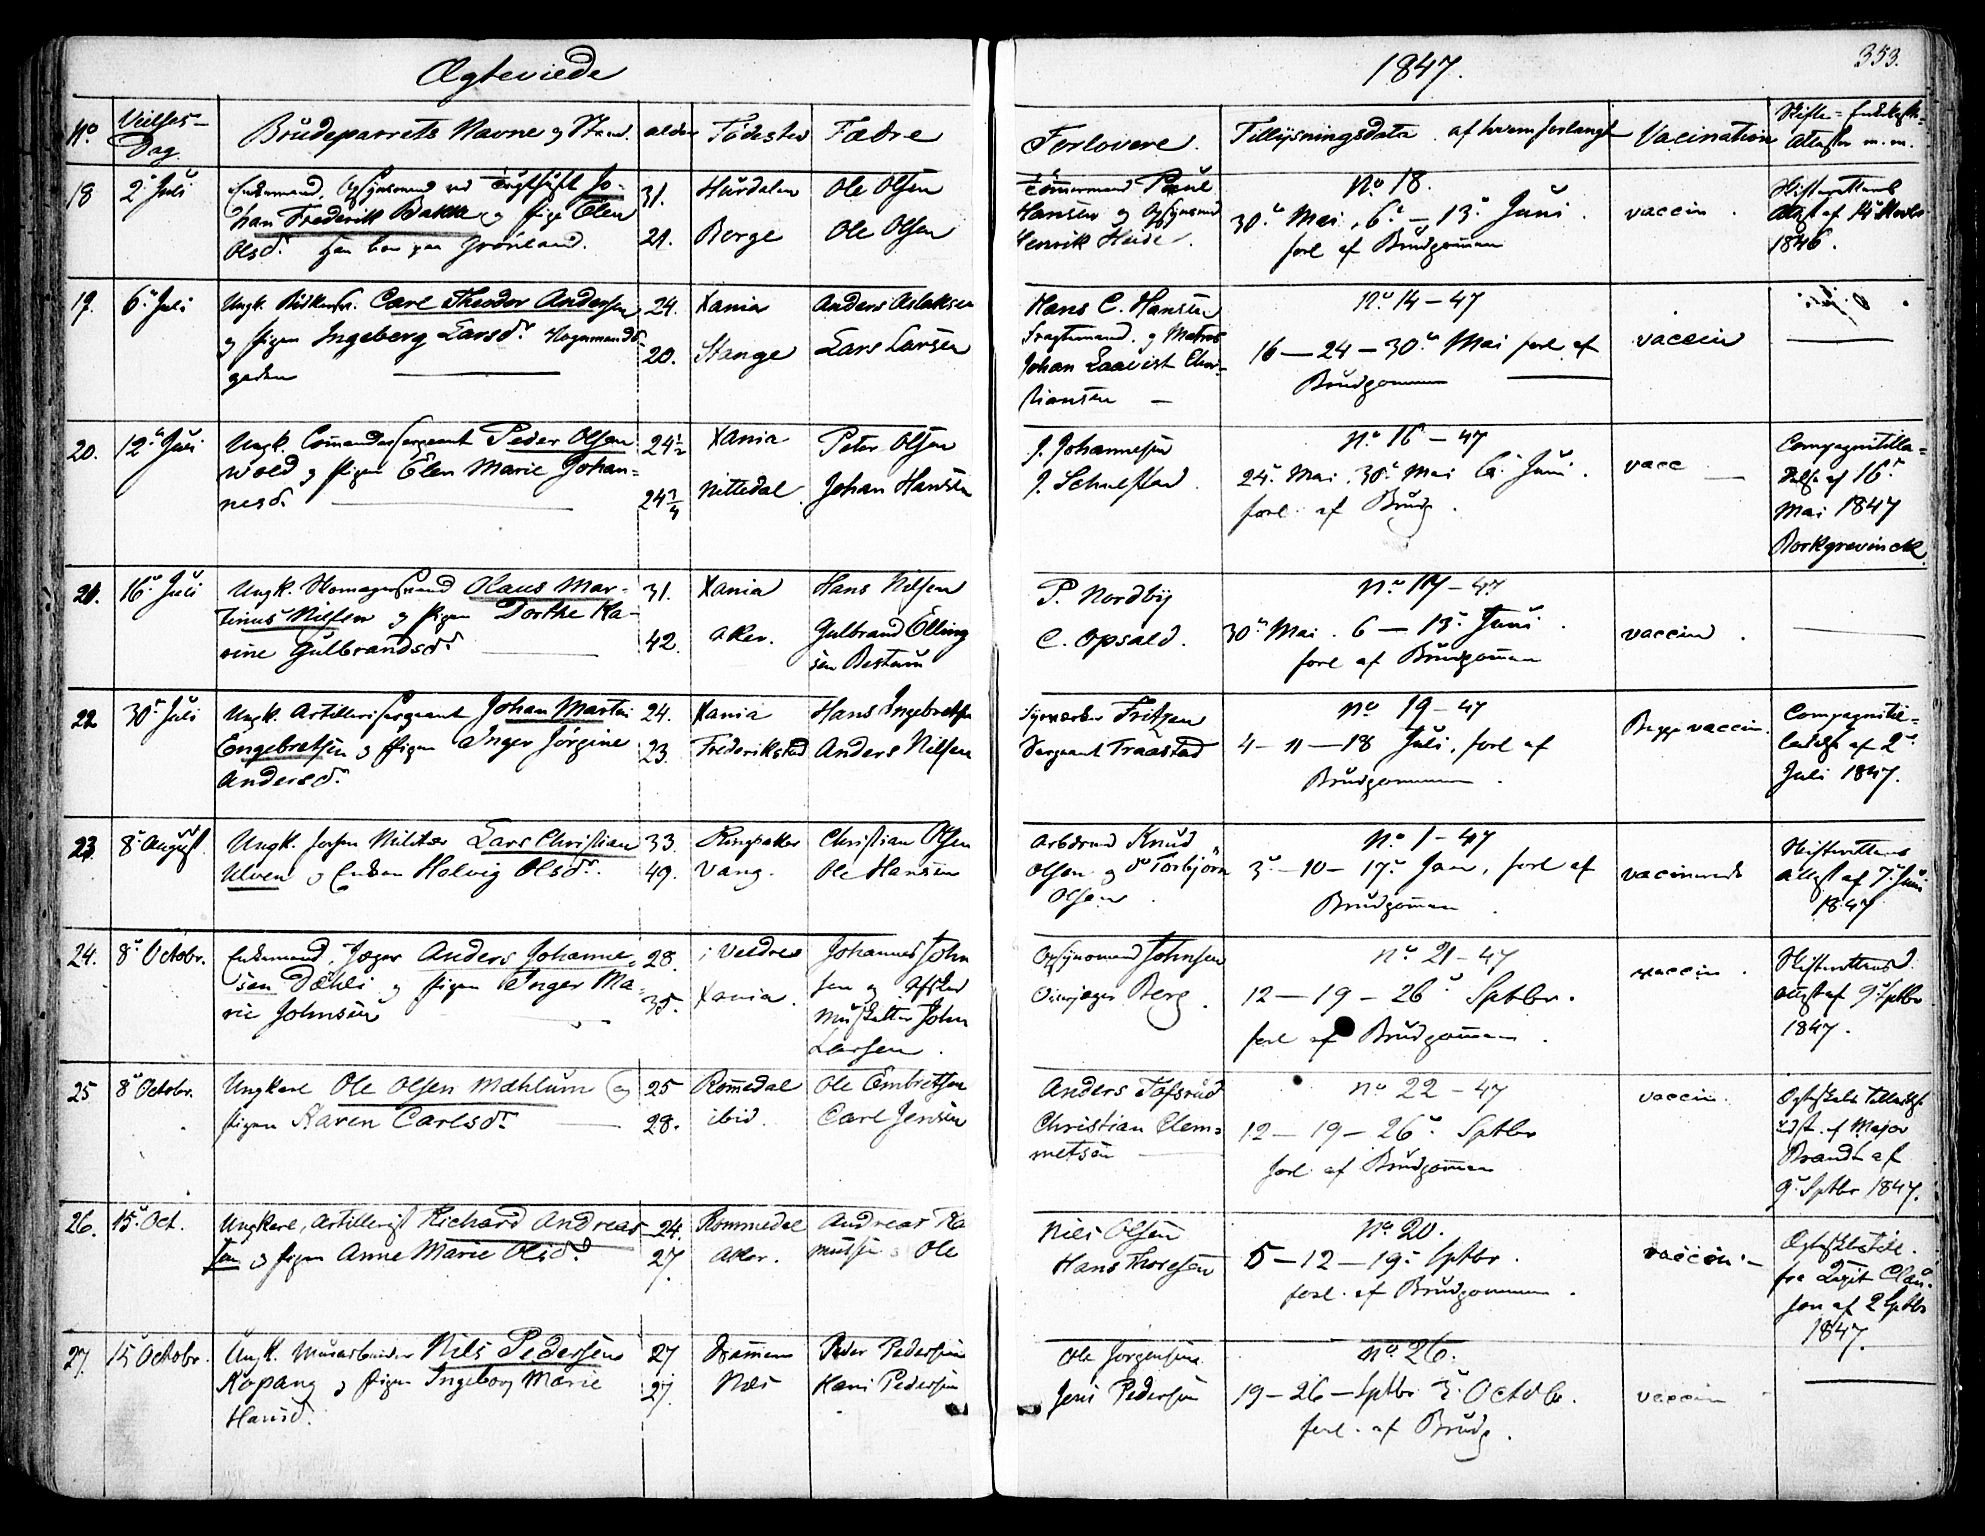 Ægteviede
1847.
353.
No
Vielses-
Dag.
Brudeparrets Navne og Stand.
alder
Födested
Fædre
Forlovere.
Tillysningsdata. af hvem forlangt
Vacination
Attester m. m.
18
2 Juli
Enkemand, Opsynsmand ved Jo-
han Frederik Bakke og Pigen Elen
Olsd. Han boer paa Grönland.
31.
21.
Hurdalen
Berge
Ole Olsen
Ole Olsen
Tömmermand Paul
Hansen og Opsynsmd
Henrik Heide.
No 18.
30 Mai, 6 - 13 Juni.
forl af Brudgommen
vaccin.
Skifterettens
Attest af
1846.
19.
6 Juli
Ungk. Carl Theodor Andersen
og Pigen Ingeborg Larsd.
gaden
24.
20.
Xania
Stange
Anders Aslaksen
Lars Larsen
Hans C. Hansen
Fragtemand. og Matros
Johan Chri-
stiansen -
No 14 - 47
16 - 24 - 30 Mai forl. af
Brudgommen
vaccin
20.
12 Juli
Ungk. Commandersergeant Peder Olsen
Wold og Pigen Elen Marie Johan-
nesd.
24½
24¾
Xania
Nittedal.
Peter Olsen
Johan Hansen
J. Johannesen
J. Schulstad.
No 16 - 47
24 Mai, 30 Mai 6 Juni.
forl. af Brudg.
vacc
Compagnietilla-
delse af 16
Mai 1847
Borkgrevinck
21.
16 Juli
Ungk. Skomagersvend Olaus Mar-
tinus Nilsen og Pigen Dorthe Ka-
rine Gulbrandsd.
31.
42.
Xania
Aker.
Hans Nilsen
Gulbrand Elling
sen Bestum
P. Nordby
C. Opsald.
No 17 - 47
30 Mai. 6 - 13 Juni.
forl af Brudgommen
vaccin.
22
30 Juli
Ungk. Artillerisergeant Johan Martin
Engebretsen og Pigen Inger Jörgine
Andersd.
24.
23.
Xania
Frederikstad
Hans Ingebretsen
Anders Nilsen
Fritzen
Sergeant Traastad
No 19 - 47
4 - 11 - 18 Juli, forl af
Brudgommen.
Begge vaccin.
Compagnitil-
ladelse af 2
Juli 1847.
23
8 August.
Ungk. Militær Lars Christian
Ulven og Enken Helvig Olsd.
33.
49.
Ringsaker
Vang.
Christian Olsen
Ole Hansen
Arbdsmd Knud
Olsen og do Torbjörn
Olsen.
No 1 - 47
3 - 10 - 17 Jan, forl af
Brudgommen.
vacinerede
Skifterettens
Attest af 7 Juni
1847
24.
8 Octobr.
Enkemand, Jæger Anders Johanne-
sen Dæhli og Pigen Inger Ma-
rie Johnsen
28.
35.
i Valdres
Xania.
Johannes John
sen og Afsked
Musketter John
Larsen.
Opsynsmand Johnsen
Berg.
No 21 - 47
12 - 19 - 26 Sptbr.
forl af Brudgommen.
vaccin.
Skifterettens
attest af 9 Sptbr
1847.
25
8 Octobr.
Ungkarl Ole Olsen Mæhlum og
Pigen Karen Carlsd.
25
28.
Romedal
ibid.
Ole Embretsen
Carl Jensen
Anders Tofsrud
Christian Clem-
metsen
No 22 - 47
12 - 19 - 26 Sptbr
forl. af Brudgommen
vaccin.
Ægteskabs Tilladelse
udst. af Major
Brandt af
9 Sptbr 1847.
26.
15 Oct.
Ungkarl, Artillerist Richard Andreas
sen og Pigen Anne Marie Olsd.
24.
27.
Rommedal
Aker.
Andreas Ra
mussen Ole
Niels Olsen
Hans Thoresen
No 20.
5 - 12 - 19 Sptbr.
forl. af Brudgommen.
vaccin. -
fra Clau-
sen af 2 Sptbr
1847.
27.
15 Octobr.
Ungk. Murarbeider Nils Pedersen
Kopang og Pigen Ingeborg Marie
Hansd.
27
27.
Drammen
Næs
Peder Pedersen
Hans Pedersen
Ole Jorgensen
Jens Pedersen
No 26.
19 - 26 - Sptbr 3 Octobr.
forl. af Brudg.
vaccin